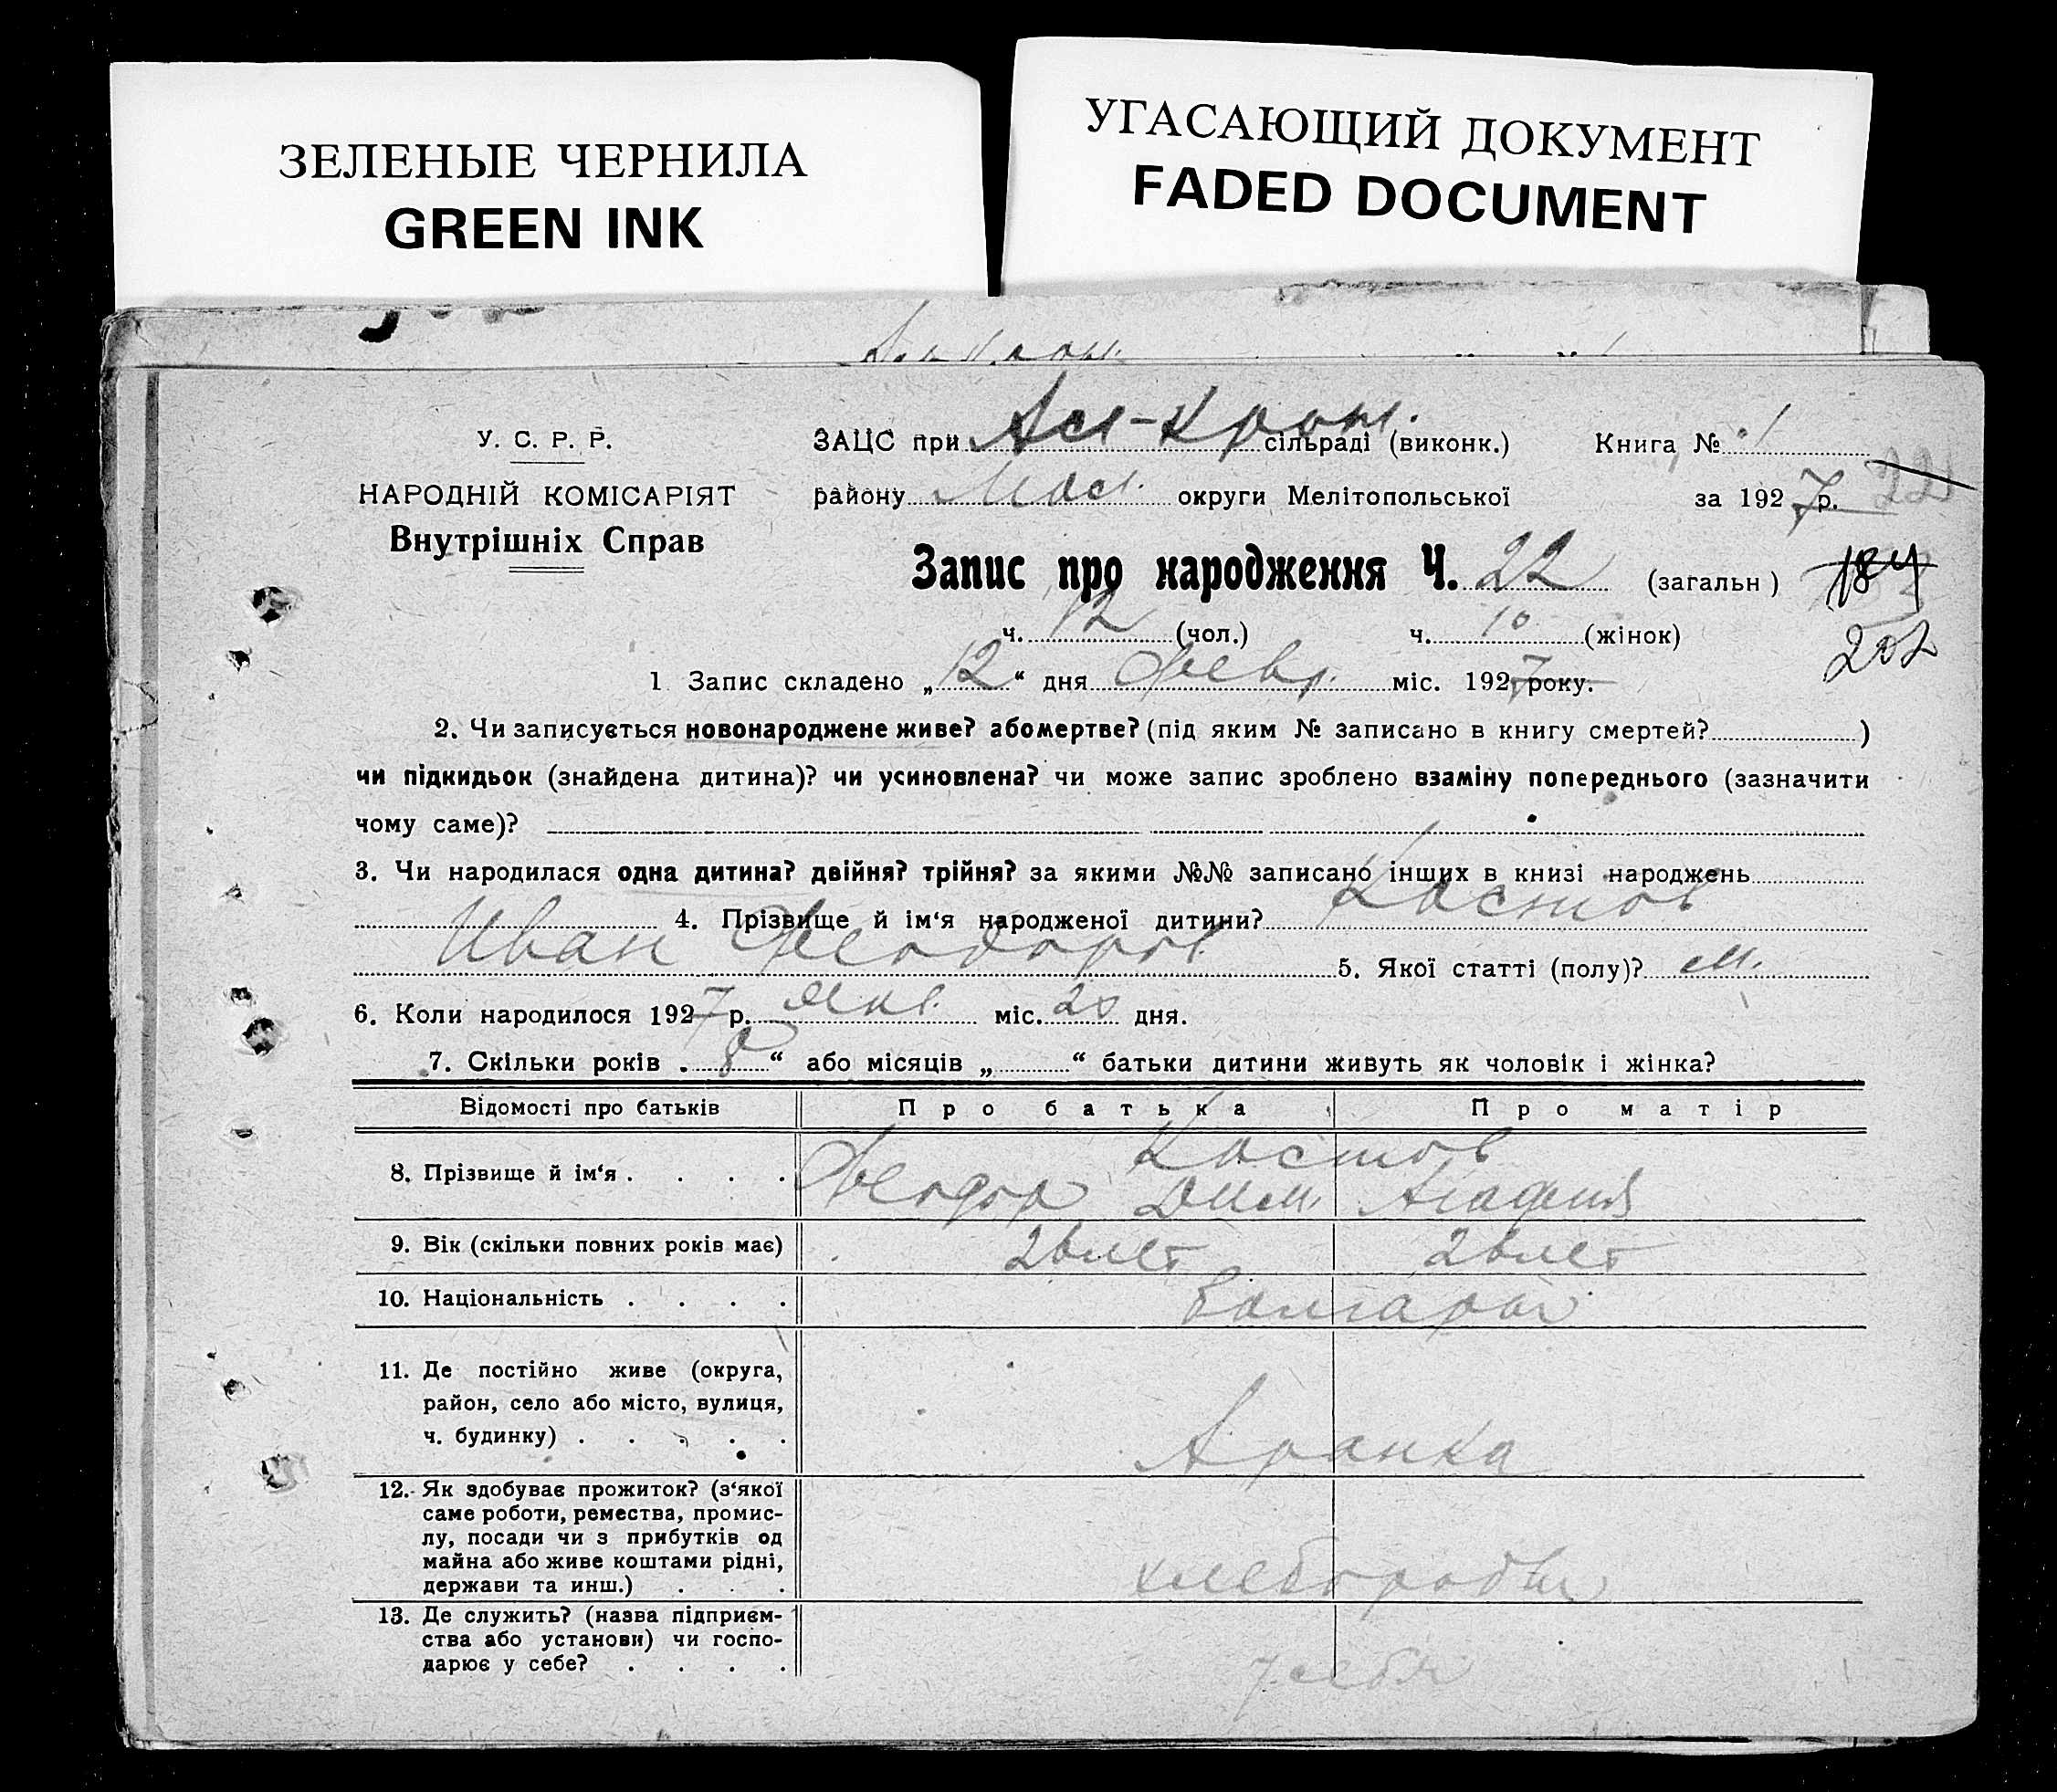 ЗЕЛЕНЫЕ ЧЕРНИЛА
GREEN INK
УГАСАЮЩИЙ ДОКУМЕНТ
FADED DOCUMENT
У. С. Р. Р.
НАРОДНІЙ КОМІСАРІЯТ
Внутрішніх Справ
ЗАЦС при сільраді (виконк.) Книга № 1
району округи Мелітопольської за 1927 р.
Запис про народження Ч. 22 (загальн)
184
ч. 12 (чол.) ч. 10 (жінок)
202
1 Запис складено „12“ дня Февр. міс. 1927 року.
2. Чи записується новонароджене живе? або мертве? (під яким № записано в книгу смертей? )
чи підкидьок (знайдена дитина)? чи усиновлена? чи може запис зроблено взаміну попереднього (зазначити
чому саме)?
3. Чи народилася одна дитина? двійня? трійня? за якими №№ записано інших в книзі народжень
4. Прізвище й ім‘я народженої дитини? Костов
Иван Феодоров 5. Якої статті (полу)? м.
6. Коли народилося 1927 р. Янв. міс. 20 дня.
7. Скільки років „8“ або місяців „ “ батьки дитини живуть як чоловік і жінка?
Відомості про батьків Про батька Про матір
8. Прізвище й ім‘я Костов
Феодор Дим. Агафия
9. Вік (скільки повних років має)
10. Національність Болгары
11. Де постійно живе (округа,
район, село або місто, вулиця,
ч. будинку) Аранка
12. Як здобуває прожиток? (з‘якої
саме роботи, ремества, промис-
лу, посади чи з прибутків од
майна або живе коштами рідні,
держави та инш.)
13. Де служить? (назва підприєм-
ства або установи) чи госпо-
дарює у себе? у себя